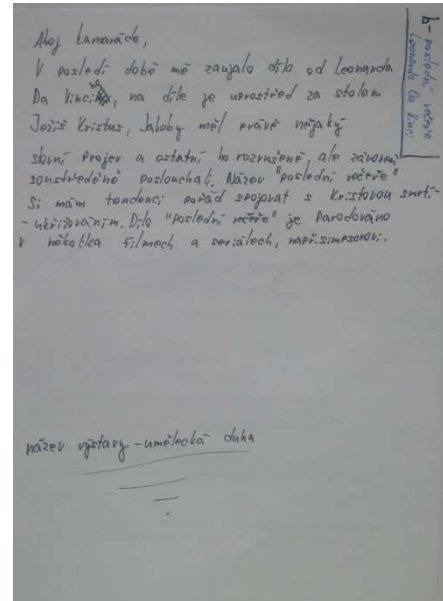 b- poslední večeře
Leonardo Da Vinci
Ahoj kamaráde,
V posledí době mě zaujalo dílo od Leonarda
Da Vinciho, na díle je uprostřed za stolem
Ježíš Kristus, Jakoby měl právě nějaký
slovní projev a ostatní ho rozrušeně, ale zároveň
soustředěně poslouchat. Název "poslední večeře"
Si mám tendenci pořád spojovat s Kristovou smrtí-
- ukřižováním. Dílo "poslední večeře" je Parodováno
v několika Filmech a seriálech, např. simpsonovi.
název výstavy - umělecká duha